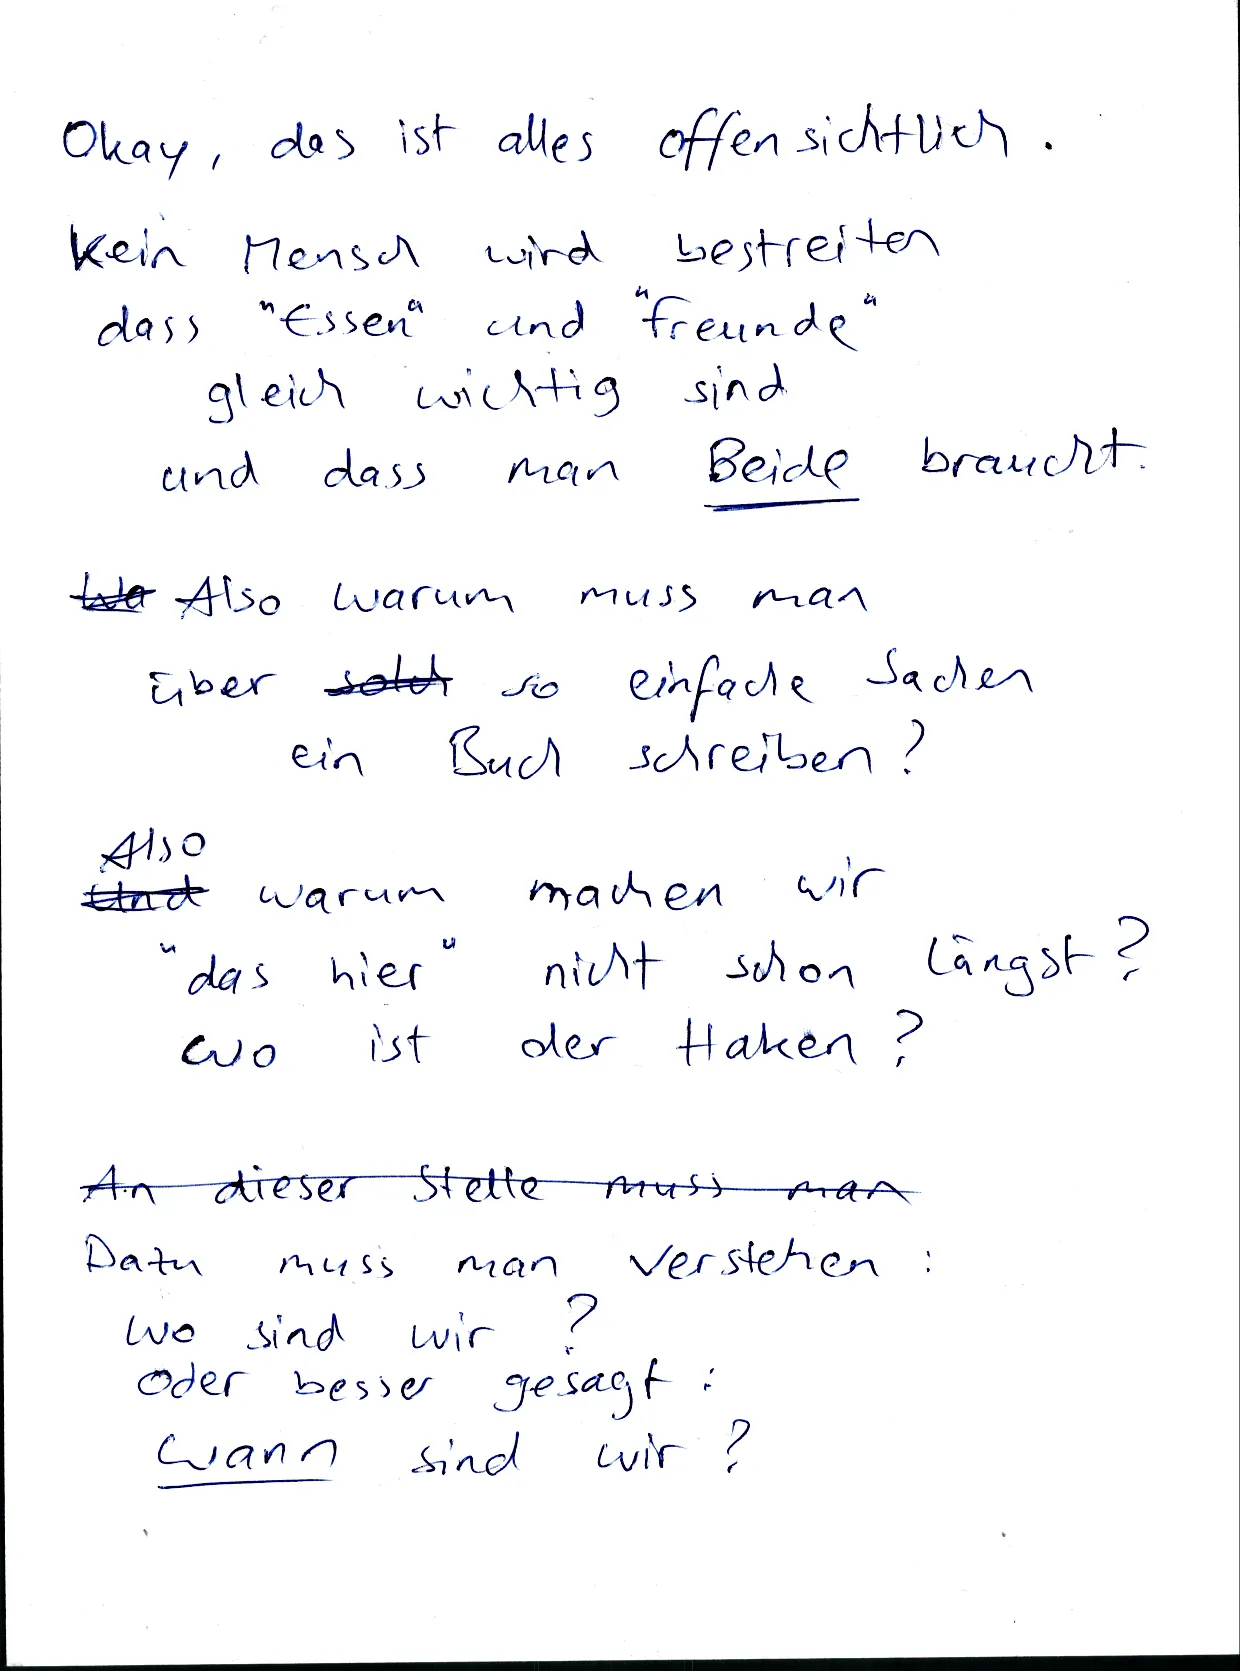 Okay, das ist alles offensichtlich.
Kein Mensch wird bestreiten
dass "Essen" und "Freunde"
gleich wichtig sind
und dass man Beide braucht.
Wa Also warum muss man
über solch so einfache Sachen
ein Buch schreiben?
Also
Und warum machen wir
"das hier" nicht schon längst?
Wo ist der Haken?
An dieser Stelle muss man
Dazu muss man verstehen:
Wo sind wir?
Oder besser gesagt:
Wann sind wir?